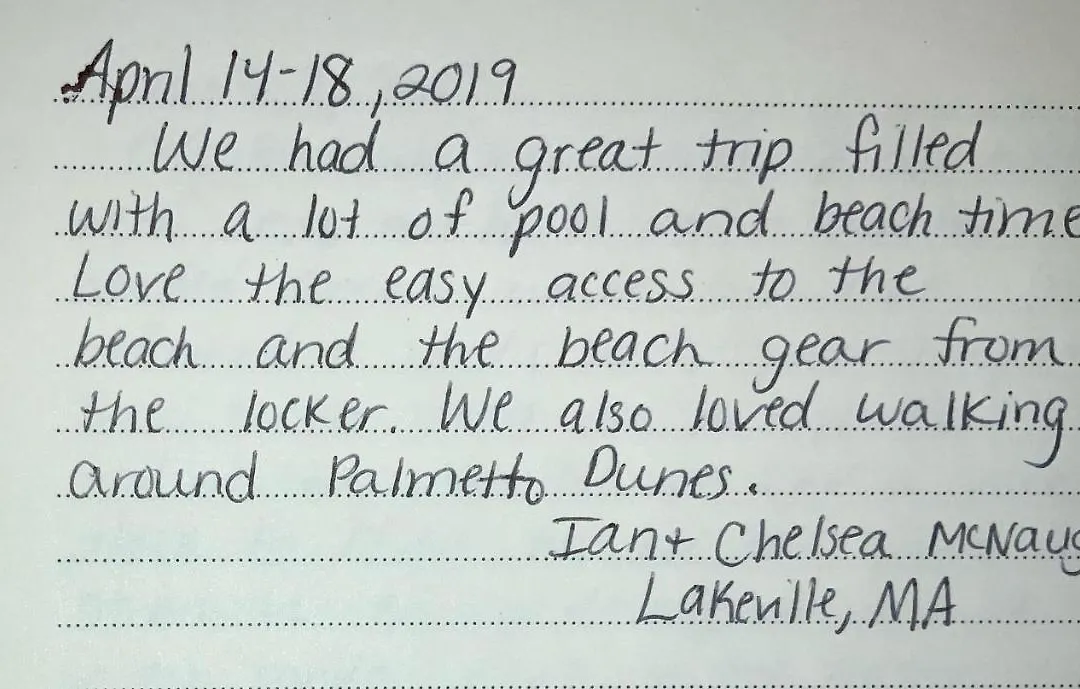 April 14-18, 2019
We had a great trip filled
with a lot of pool and beach time
Love the easy access to the
beach and the beach gear from
the locker. We also loved walking
around Palmetto Dunes.
Ian + Chelsea McNaug
Lakeville, MA